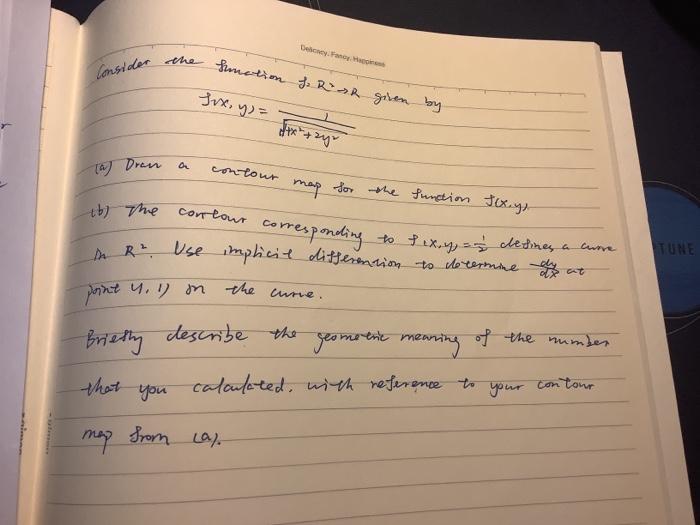 Delicacy. Fancy. Happiness
Consider the function f: R² → R given by
f(x, y) = 1/√(1+x²+2y²)
(a) Draw a contour map for the function f(x, y).
(b) The contour corresponding to f(x, y) = 1/2 defines a curve
in R². Use implicit differention to determine dy/dx at
point (1, 1) on the curve.
Briefly describe the geometric meaning of the number
that you calculated, with reference to your contour
map from (a).
TUNE